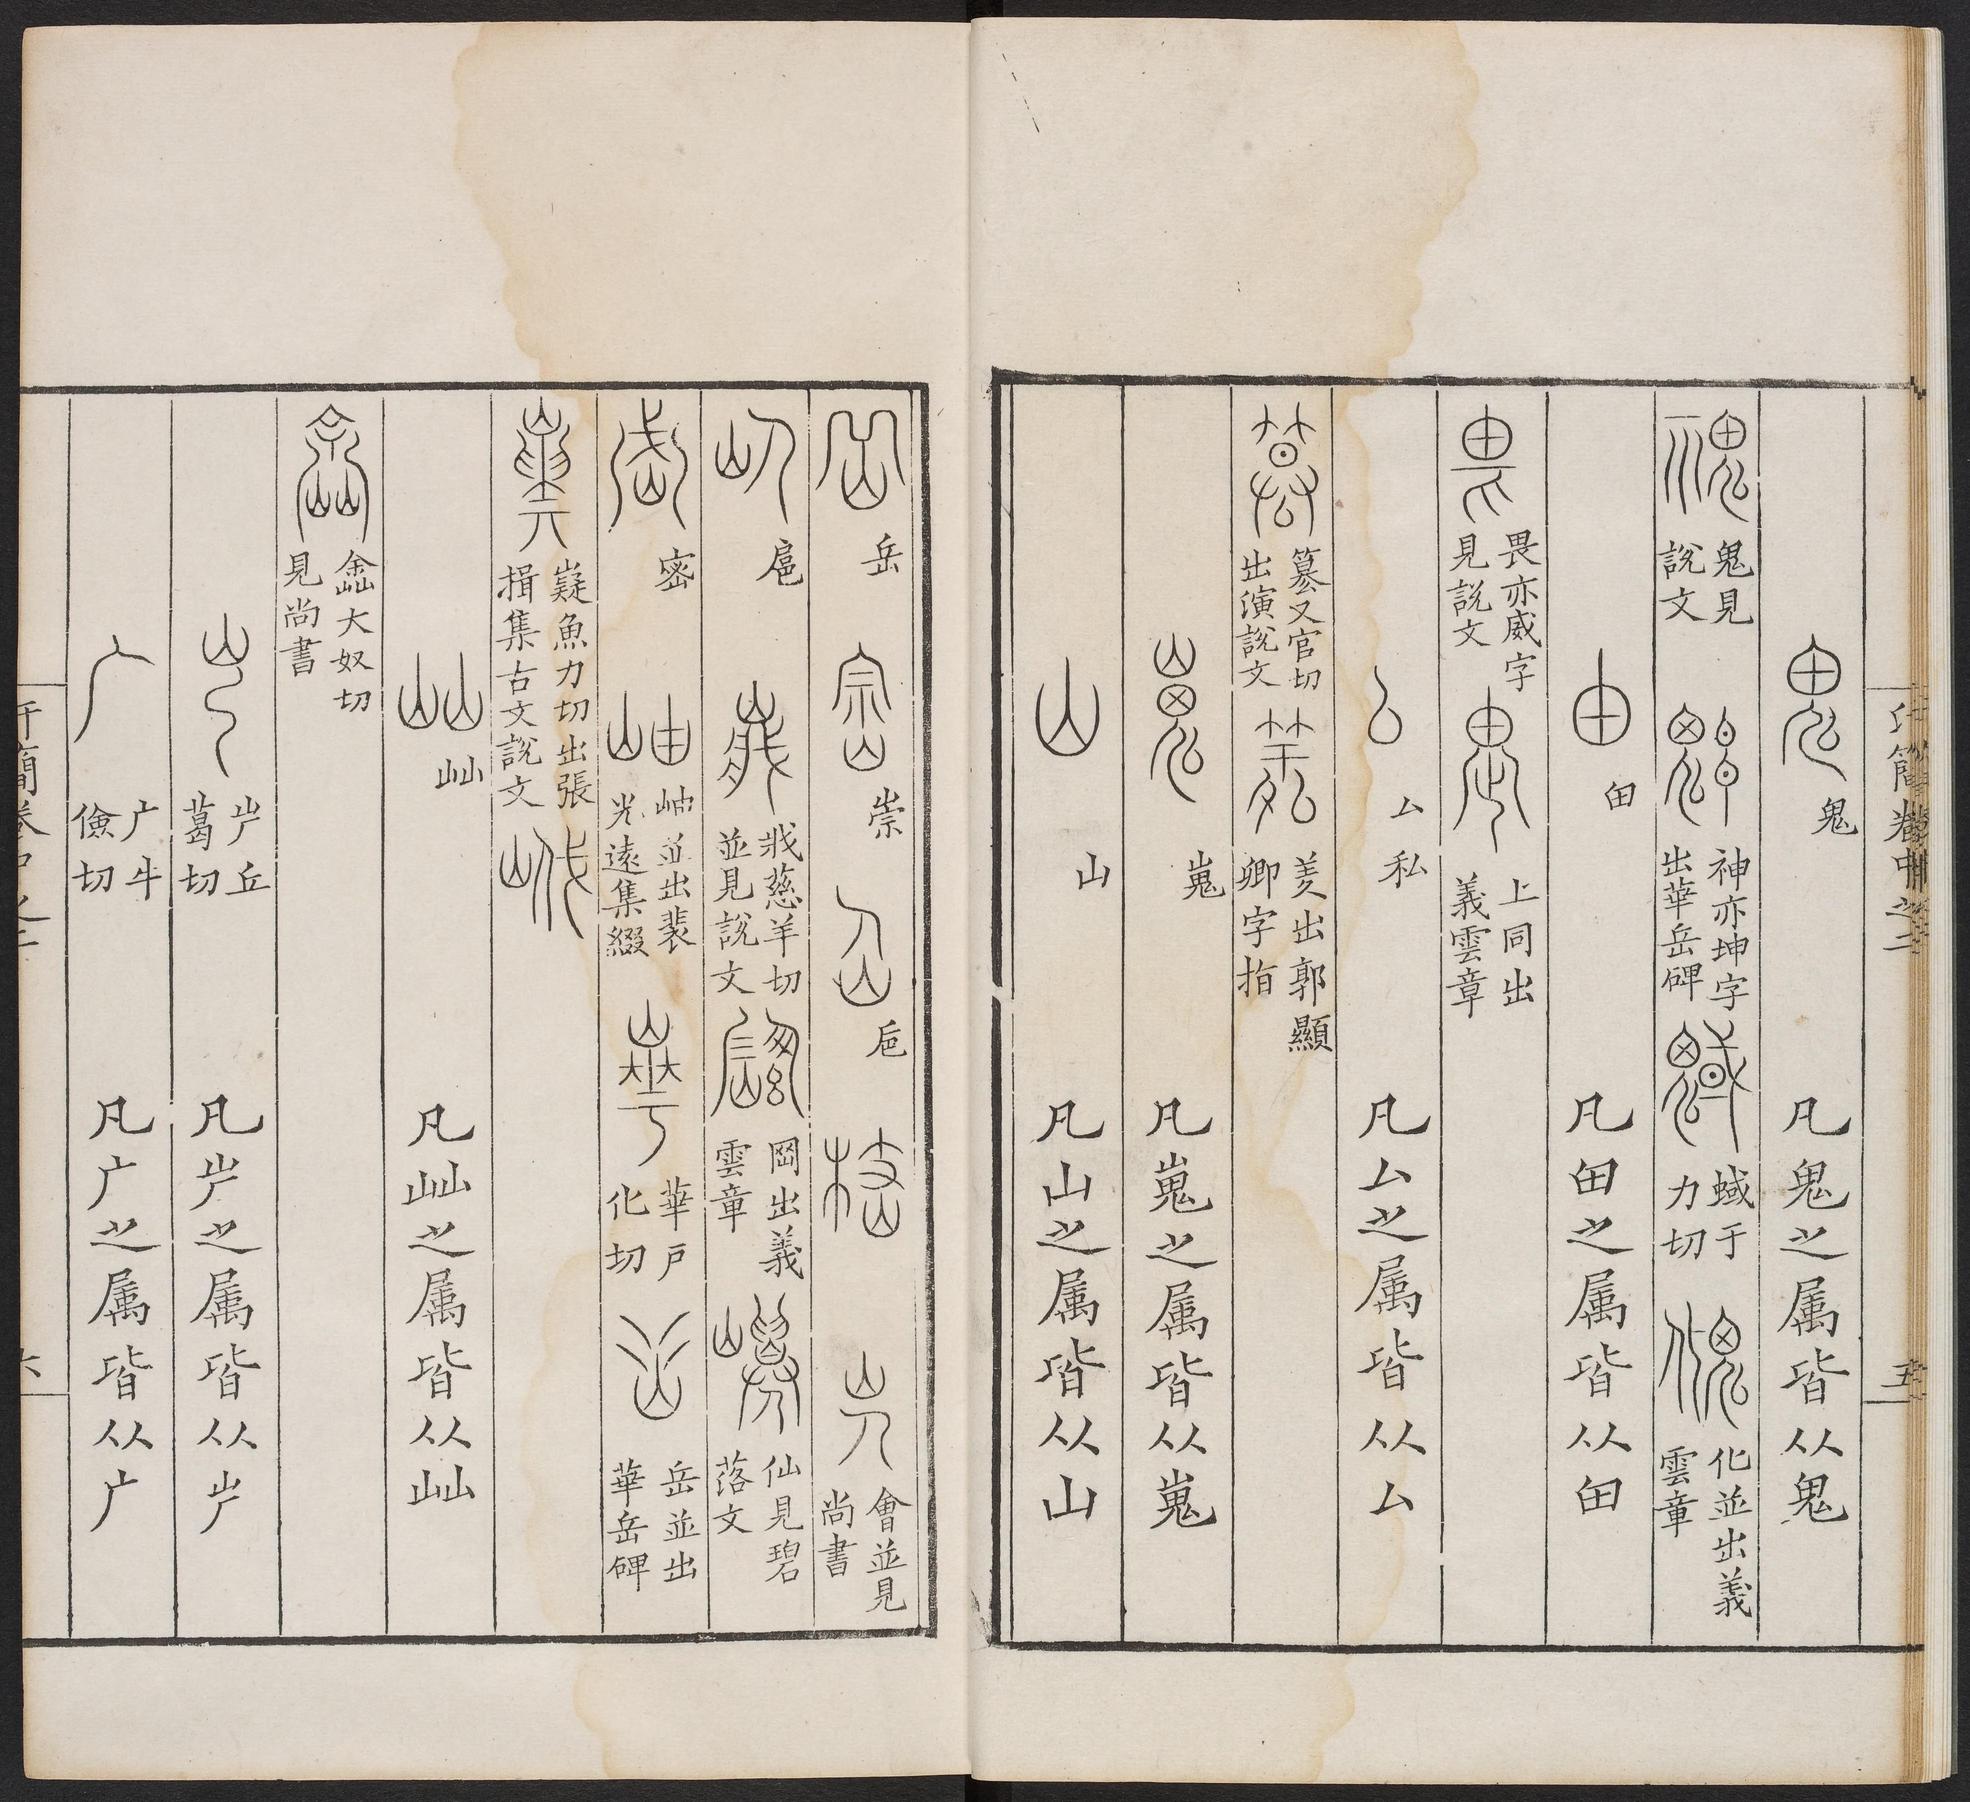 汗簡卷中之二
五
鬼 凡鬼之属皆从鬼
鬼見說文 神亦坤字出華岳碑 蜮于力切 化並出義雲章
甶 凡甶之属皆从甶
畏亦威字見說文 上同出義雲章
厶私 凡厶之属皆从厶
篡叉官切出演說文 羑出郭顯卿字指
嵬 凡嵬之属皆从嵬
山 凡山之属皆从山
岳 崇 巵 會並見尚書
扈 戕慈羊切並見說文 岡出義雲章 仙見碧落文
密 岫並出裴光遠集綴 華戶化切 岳並出華岳碑
嶷魚力切出張揖集古文說文
屾 凡屾之属皆从屾
嵞大奴切見尚書
屵丘葛切 凡屵之属皆从屵
广牛儉切 凡广之属皆从广
汗簡卷中之二
六